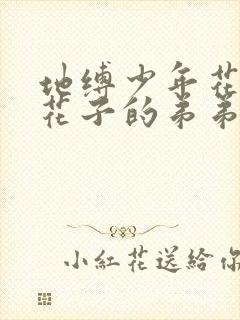 地缚少年花
花子的弟弟
小紅花送給你